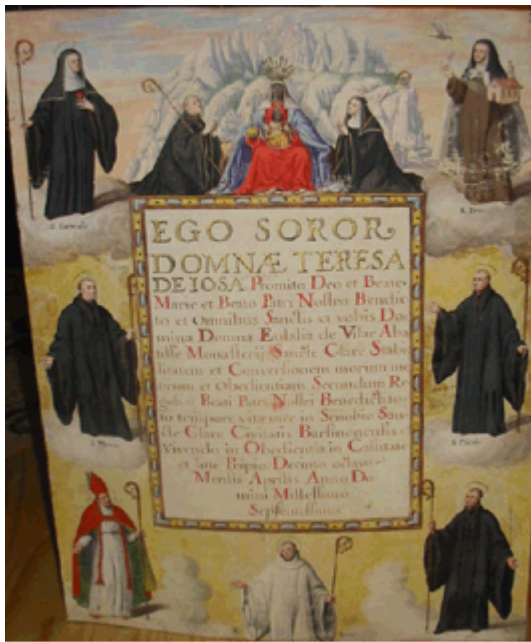 EGO SOROR
DOMNÆ TERESA
DE IOSA Promito Deo et Beate
Marie et Beato Patri Nostro Benedic
to et Omnibus Sanctis et vobis Do
mina Domna Eulalia de Vilar Aba
tisse Monasterij Sancte Clare Stabi
litatem et Conversionem morum me
orum et Obedientiam Secundum Re
gulam Beati Patri Nostri Benedicti to
to tempore vitæ mee in Senobio San
cte Clare Civitatis Barsinonensis
Vivendo in Obedientia in Castitate
et sine Propio Decimo octavo
Mensis Aprilis Anno Do
mini Millesimo